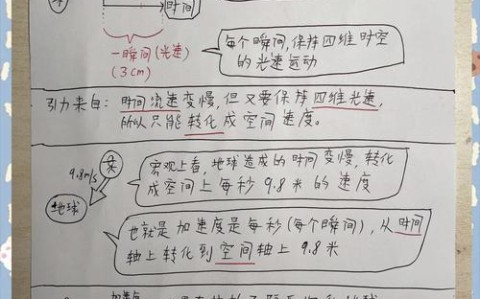 时间
一瞬间(光速)
(3cm)
每个瞬间,保持四维时空
的光速运动
引力来自:时间流速变慢,但又要保持四维光速,
所以只能转化成空间速度。
9.8m/s
地球
宏观上看,地球造成的时间变慢,转化
成空间上每秒9.8米的速度
也就是加速度是每秒(每个瞬间),从时间
轴上转化到空间轴上9.8米